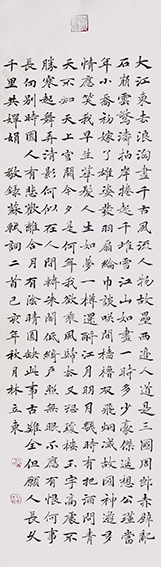 大江東去浪淘盡千古風流人物故壘西邊人道是三國周郎赤壁亂
石崩雲驚濤拍岸捲起千堆雪江山如畫一時多少豪傑遙想公瑾當
年小喬初嫁了雄姿英發羽扇綸巾談笑間檣櫓灰飛煙滅故國神遊多
情應笑我早生華髮人生如夢一樽還酹江月明月幾時有把酒問青
天不知天上宮闕今夕是何年我欲乘風歸去又恐瓊樓玉宇高處不
勝寒起舞弄清影何似在人間轉朱閣低綺戶照無眠不應有恨何事
長向別時圓人有悲歡離合月有陰晴圓缺此事古難全但願人長久
千里共嬋娟 敬錄蘇軾詞二首己亥年秋月林立東